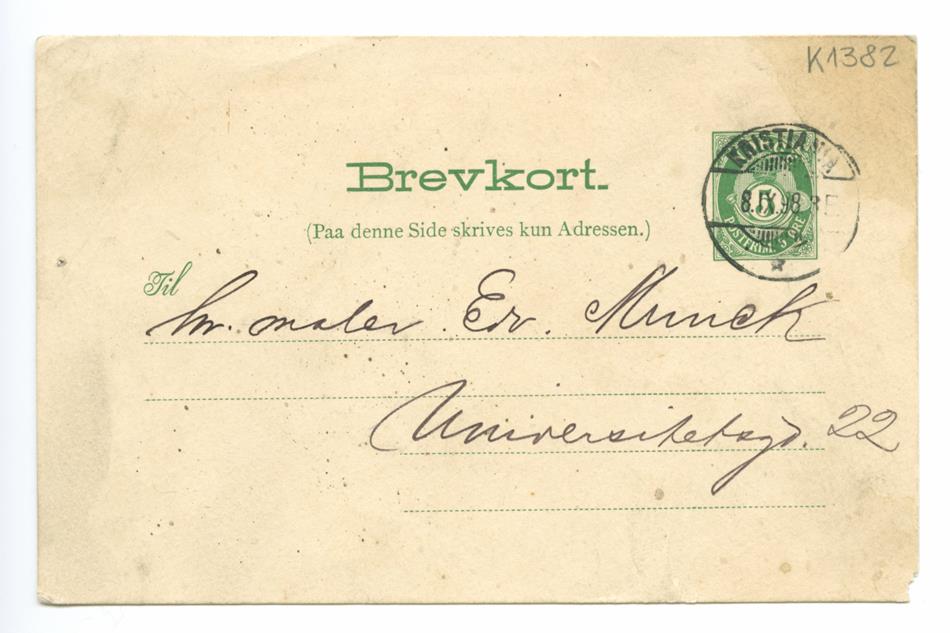 K1382
KRISTIANIA
8.IX.98
5
POSTFRIM. 5 ØRE
Brevkort.
(Paa denne Side skrives kun Adressen.)
Til
hr. maler Edv. Munck
Universitetsgd. 22